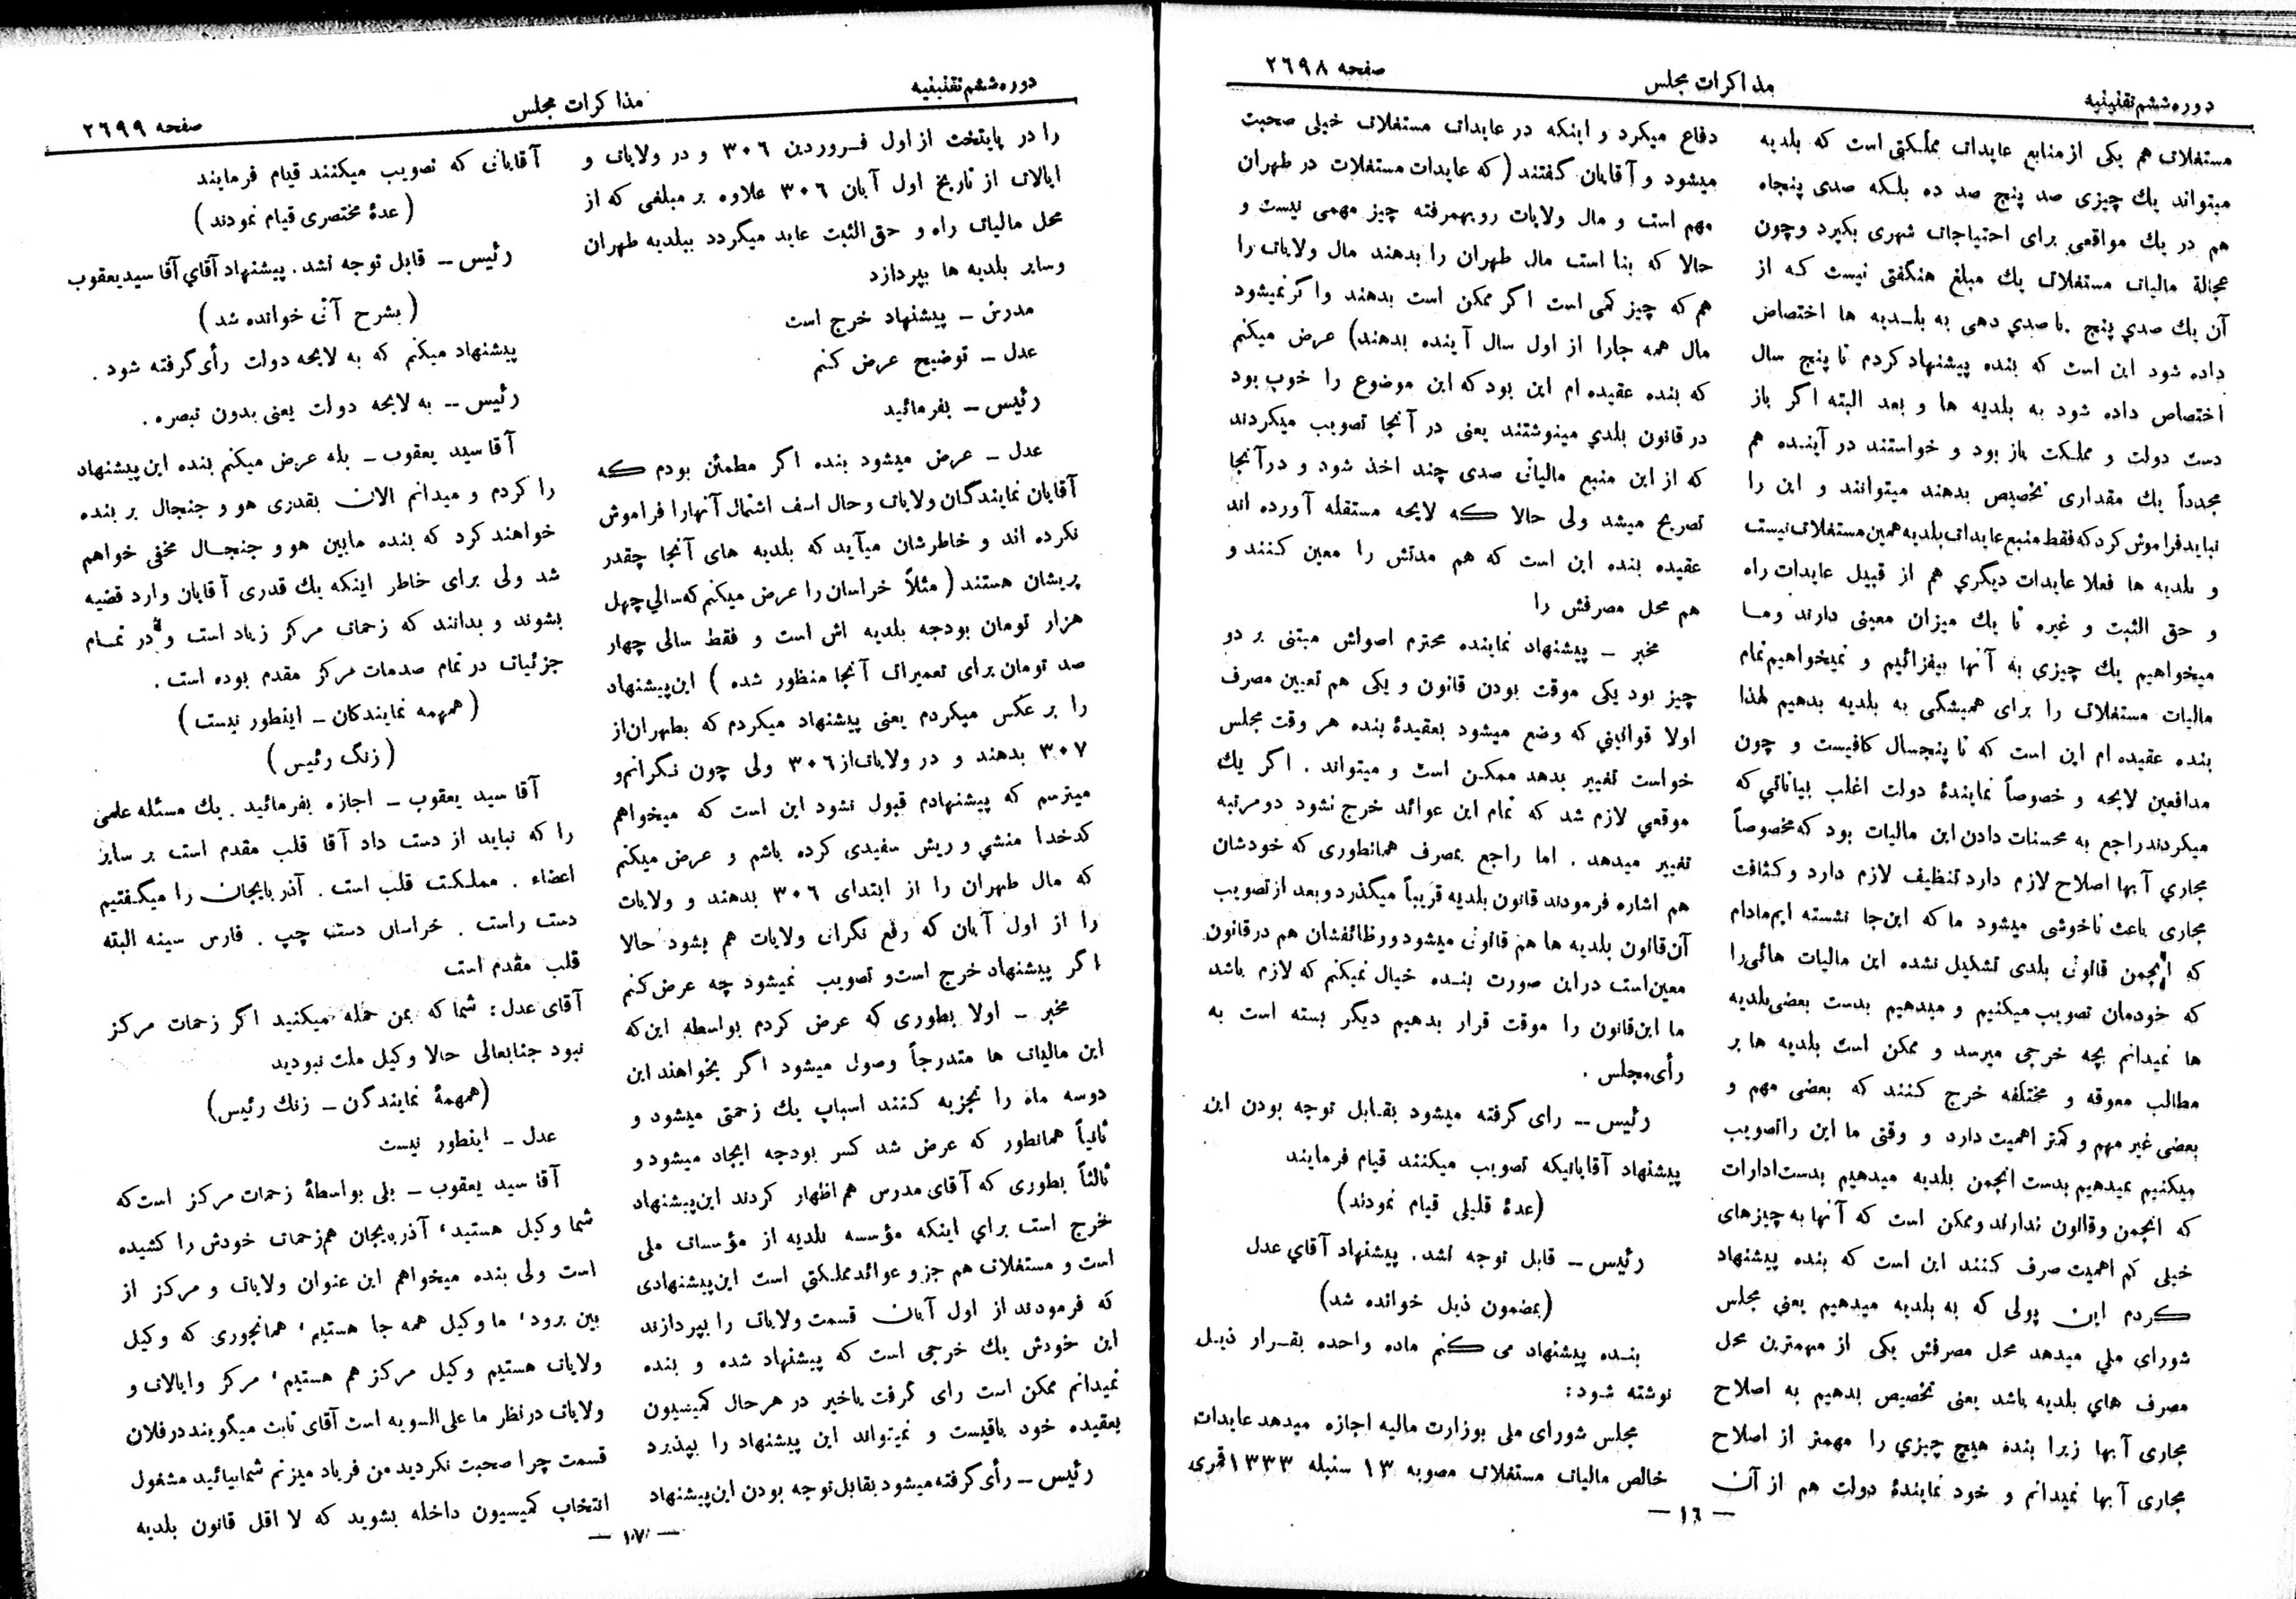 دوره ششم تقنینیه
مذاکرات مجلس
صفحه ۲٦۹۸
مستغلات هم یکی از منابع عایدات مملکتی است که بلدیه
میتواند یك چیزی صد پنج صد ده بلکه صدی پنجاه
هم در یك مواقعی برای احتیاجات شهری بگیرد وچون
عجالة مالیات مستغلات یك مبلغ هنگفتی نیست که از
آن یك صدي پنج .تا صدي دهی به بلـدیه ها اختصاص
داده شود این است که بنده پیشنهاد کردم تا پنج سال
اختصاص داده شود به بلدیه ها و بعد البته اگر باز
دست دولت و مملکت باز بود و خواستند در آینـده هم
مجدداً یك مقداری تخصیص بدهند میتوانند و این را
نباید فراموش کرد که فقط منبع عایدات بلدیه همین مستغلات نیست
و بلدیه ها فعلا عایدات دیگري هم از قبیل عایدات راه
و حق الثبت و غیره تا یك میزان معینی دارند ومـا
میخواهیم یك چیزي به آنها بیفزائیم و نمیخواهیم تمام
مالیات مستغلات را برای همیشگی به بلدیه بدهیم لهذا
بنده عقیده ام این است که تا پنجسال کافیست و چون
مدافعین لایحه و خصوصاً نمایندهٔ دولت اغلب بیاناتي که
میکردند راجع به محسنات دادن این مالیات بود که مخصوصاً
مجاري آ بها اصلاح لازم دارد تنظیف لازم دارد و کثافت
مجاری باعث ناخوشی میشود ما که این‌جا نشسته ایم مادام
که انجمن قانونی بلدی تشکیل نشده این مالیات هائی را
که خودمان تصویب میکنیم و میدهیم بدست بعضی بلدیه
ها نمیدانم بچه خرجی میرسد و ممکن است بلدیه ها بر
مطالب معوقه و مختلفه خرج کنند که بعضی مهم و
بعضی غیر مهم و کمتر اهمیت دارد و وقتی ما این را تصویب
میکنیم نمیدهیم بدست انجمن بلدیه میدهیم بدست ادارات
که انجمن وقانون ندارند وممکن است که آنها به چیزهای
خیلی کم اهمیت صرف کنند این است که بنده پیشنهاد
کردم این پولی که به بلدیه میدهیم یعنی مجلس
شوراي ملي میدهد محل مصرفش یکی از مهمترین محل
مصرف هاي بلدیه باشد یعنی تخصیص بدهیم به اصلاح
مجاری آ بها زیرا بنده هیچ چیزي را مهمتر از اصلاح
مجاری آ بها نمیدانم و خود نمایندهٔ دولت هم از آن
دفاع میکرد و اینکه در عایدات مستغلات خیلی صحبت
میشود و آقایان گفتند (که عایدات مستغلات در طهران
مهم است و مال ولایات روبهمرفته چیز مهمی نیست و
حالا که بنا است مال طهران را بدهند مال ولایات را
هم که چیز کمی است اگر ممکن است بدهند واگر نمیشود
مال همه جارا از اول سال آینده بدهند) عرض میکنم
که بنده عقیده ام این بود که این موضوع را خوب بود
در قانون بلدي مینوشتند یعنی در آنجا تصویب میکردند
که از این منبع مالیاتی صدی چند اخذ شود و درآنجا
تصریح میشد ولی حالا که لایحه مستقله آورده اند
عقیده بنده این است که هم مدتش را معین کنند و
هم محل مصرفش را
مخبر ــ پیشنهاد نماینده محترم اصولش مبتنی بر دو
چیز بود یکی موقت بودن قانون و یکی هم تعیین مصرف
اولا قوانینی که وضع میشود بعقیدهٔ بنده هر وقت مجلس
خواست تغییر بدهد ممکن است و میتواند . اگر یك
موقعي لازم شد که تمام این عوائد خرج نشود دو مرتبه
تغییر میدهد . اما راجع بمصرف همانطوری که خودشان
هم اشاره فرمودند قانون بلدیه قریباً میگذرد و بعد از تصویب
آن قانون بلدیه ها هم قانونی میشود و وظائفشان هم در قانون
معین است در این صورت بنـده خیال نمیکنم که لازم باشد
ما این قانون را موقت قرار بدهیم دیگر بسته است به
رأی مجلس .
رئیس ــ رای گرفته میشود بقـابل توجه بودن این
پیشنهاد آقایانیکه تصویب میکنند قیام فرمایند
(عدهٔ قلیلی قیام نمودند)
رئیس ــ قابل توجه نشد. پیشنهاد آقاي عدل
(بمضمون ذیل خوانده شد)
بنـده پیشنهاد می کنم ماده واحده بقـرار ذیـل
نوشته شود:
مجلس شورای ملی بوزارت مالیه اجازه میدهد عایدات
خالص مالیات مستغلات مصوبه ۱۳ سنبله ۱۳۳۳ قمری
— ۱٦ —
دوره ششم تقنینیه
مذاکرات مجلس
صفحه ۲٦۹۹
را در پایتخت از اول فـروردین ۳۰٦ و در ولایات و
ایالات از تاریخ اول آبان ۳۰٦ علاوه بر مبلغی که از
محل مالیات راه و حق الثبت عاید میگردد ببلدیه طهران
وسایر بلدیه ها بپردازد
مدرس ــ پیشنهاد خرج است
عدل ــ توضیح عرض کنم
رئیس ــ بفرمائید
عدل ــ عرض میشود بنده اگر مطمئن بودم که
آقایان نمایندگان ولایات وحال اسف اشتمال آنهارا فراموش
نکرده اند و خاطرشان میآید که بلدیه های آنجا چقدر
پریشان هستند (مثلاً خراسان را عرض میکنم که سالي چهل
هزار تومان بودجه بلدیه اش است و فقط سالی چهار
صد تومان برای تعمیرات آنجا منظور شده ) این پیشنهاد
را بر عکس میکردم یعنی پیشنهاد میکردم که بطهران از
۳۰۷ بدهند و در ولایات از ۳۰٦ ولی چون نگرانم و
میترسم که پیشنهادم قبول نشود این است که میخواهم
کدخدا منشي و ریش سفیدی کرده باشم و عرض میکنم
که مال طهران را از ابتدای ۳۰٦ بدهند و ولایات
را از اول آبان که رفع نگرانی ولایات هم بشود حالا
اگر پیشنهاد خرج است و تصویب نمیشود چه عرض کنم
مخبر ــ اولا بطوری که عرض کردم بواسطه این که
این مالیات ها متدرجاً وصول میشود اگر بخواهند این
دوسه ماه را تجزیه کنند اسباب یك زحمتی میشود و
ثانیاً همانطور که عرض شد کسر بودجه ایجاد میشود و
ثالثاً بطوری که آقای مدرس هم اظهار کردند این پیشنهاد
خرج است براي اینکه مؤسسه بلدیه از مؤسسات ملی
است و مستغلات هم جزو عوائد مملکتی است این پیشنهادی
که فرمودند از اول آبان قسمت ولایات را بپردازند
این خودش یك خرجی است که پیشنهاد شده و بنده
نمیدانم ممکن است رای گرفت یاخیر در هر حال کمیسیون
بعقیده خود باقیست و نمیتواند این پیشنهاد را بپذیرد
رئیس ــ رأی گرفته میشود بقابل توجه بودن این پیشنهاد
آقایانی که تصویب میکنند قیام فرمایند
(عدهٔ مختصری قیام نمودند)
رئیس ــ قابل توجه نشد . پیشنهاد آقاي آقا سید یعقوب
(بشرح آتی خوانده شد)
پیشنهاد میکنم که به لایحه دولت رأی گرفته شود .
رئیس ــ به لایحه دولت یعنی بدون تبصره .
آقا سید یعقوب ــ بله عرض میکنم بنده این پیشنهاد
را کردم و میدانم الان بقدری هو و جنجال بر بنده
خواهند کرد که بنده مابین هو و جنجـال مخفی خواهم
شد ولی برای خاطر اینکه یك قدری آقایان وارد قضیه
بشوند و بدانند که زحمات مرکز زیاد است و در تمـام
جزئیات در تمام صدمات مرکز مقدم بوده است .
(همهمه نمایندکان ــ اینطور نیست)
(زنگ رئیس)
آقا سید یعقوب ــ اجازه بفرمائید . یك مسئله علمی
را که نباید از دست داد آقا قلب مقدم است بر سایر
اعضاء . مملکت قلب است . آذربایجان را میگفتیم
دست راست . خراسان دست چپ . فارس سینه البته
قلب مقدم است
آقای عدل: شما که بمن حمله میکنید اگر زحمات مرکز
نبود جنابعالی حالا وکیل ملت نبودید
(همهمهٔ نمایندگن ــ زنك رئیس)
عدل ــ اینطور نیست
آقا سید یعقوب ــ بلی بواسطهٔ زحمات مرکز است که
شما وکیل هستید، آذربایجان هم زحمات خودش را کشیده
است ولی بنده میخواهم این عنوان ولایات و مرکز از
بین برود، ما وکیل همه جا هستیم، همانجوری که وکیل
ولایات هستیم وکیل مرکز هم هستیم، مرکز وایالات و
ولایات در نظر ما علی السویه است آقای ثابت میگویند در فلان
قسمت چرا صحبت نکردید من فریاد میزنم شما بیائید مشغول
انتخاب کمیسیون داخله بشوید که لا اقل قانون بلدیه
— ۱۷ —